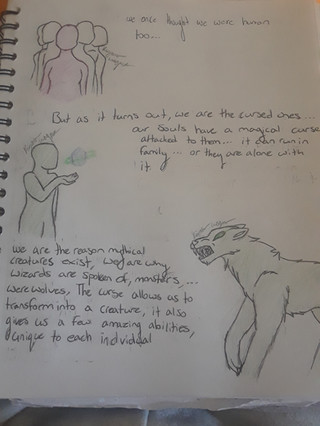 we once thought we were human
too...
But as it turns out, we are the cursed ones...
our souls have a magical curse
attached to them... it can run in
family... or they are alone with
it
we are the reason mythical
creatures exist, we are why
wizards are spoken of, monsters, ...
werewolves, The curse allows us to
transform into a creature, it also
gives us a few amazing abilities,
unique to each individual